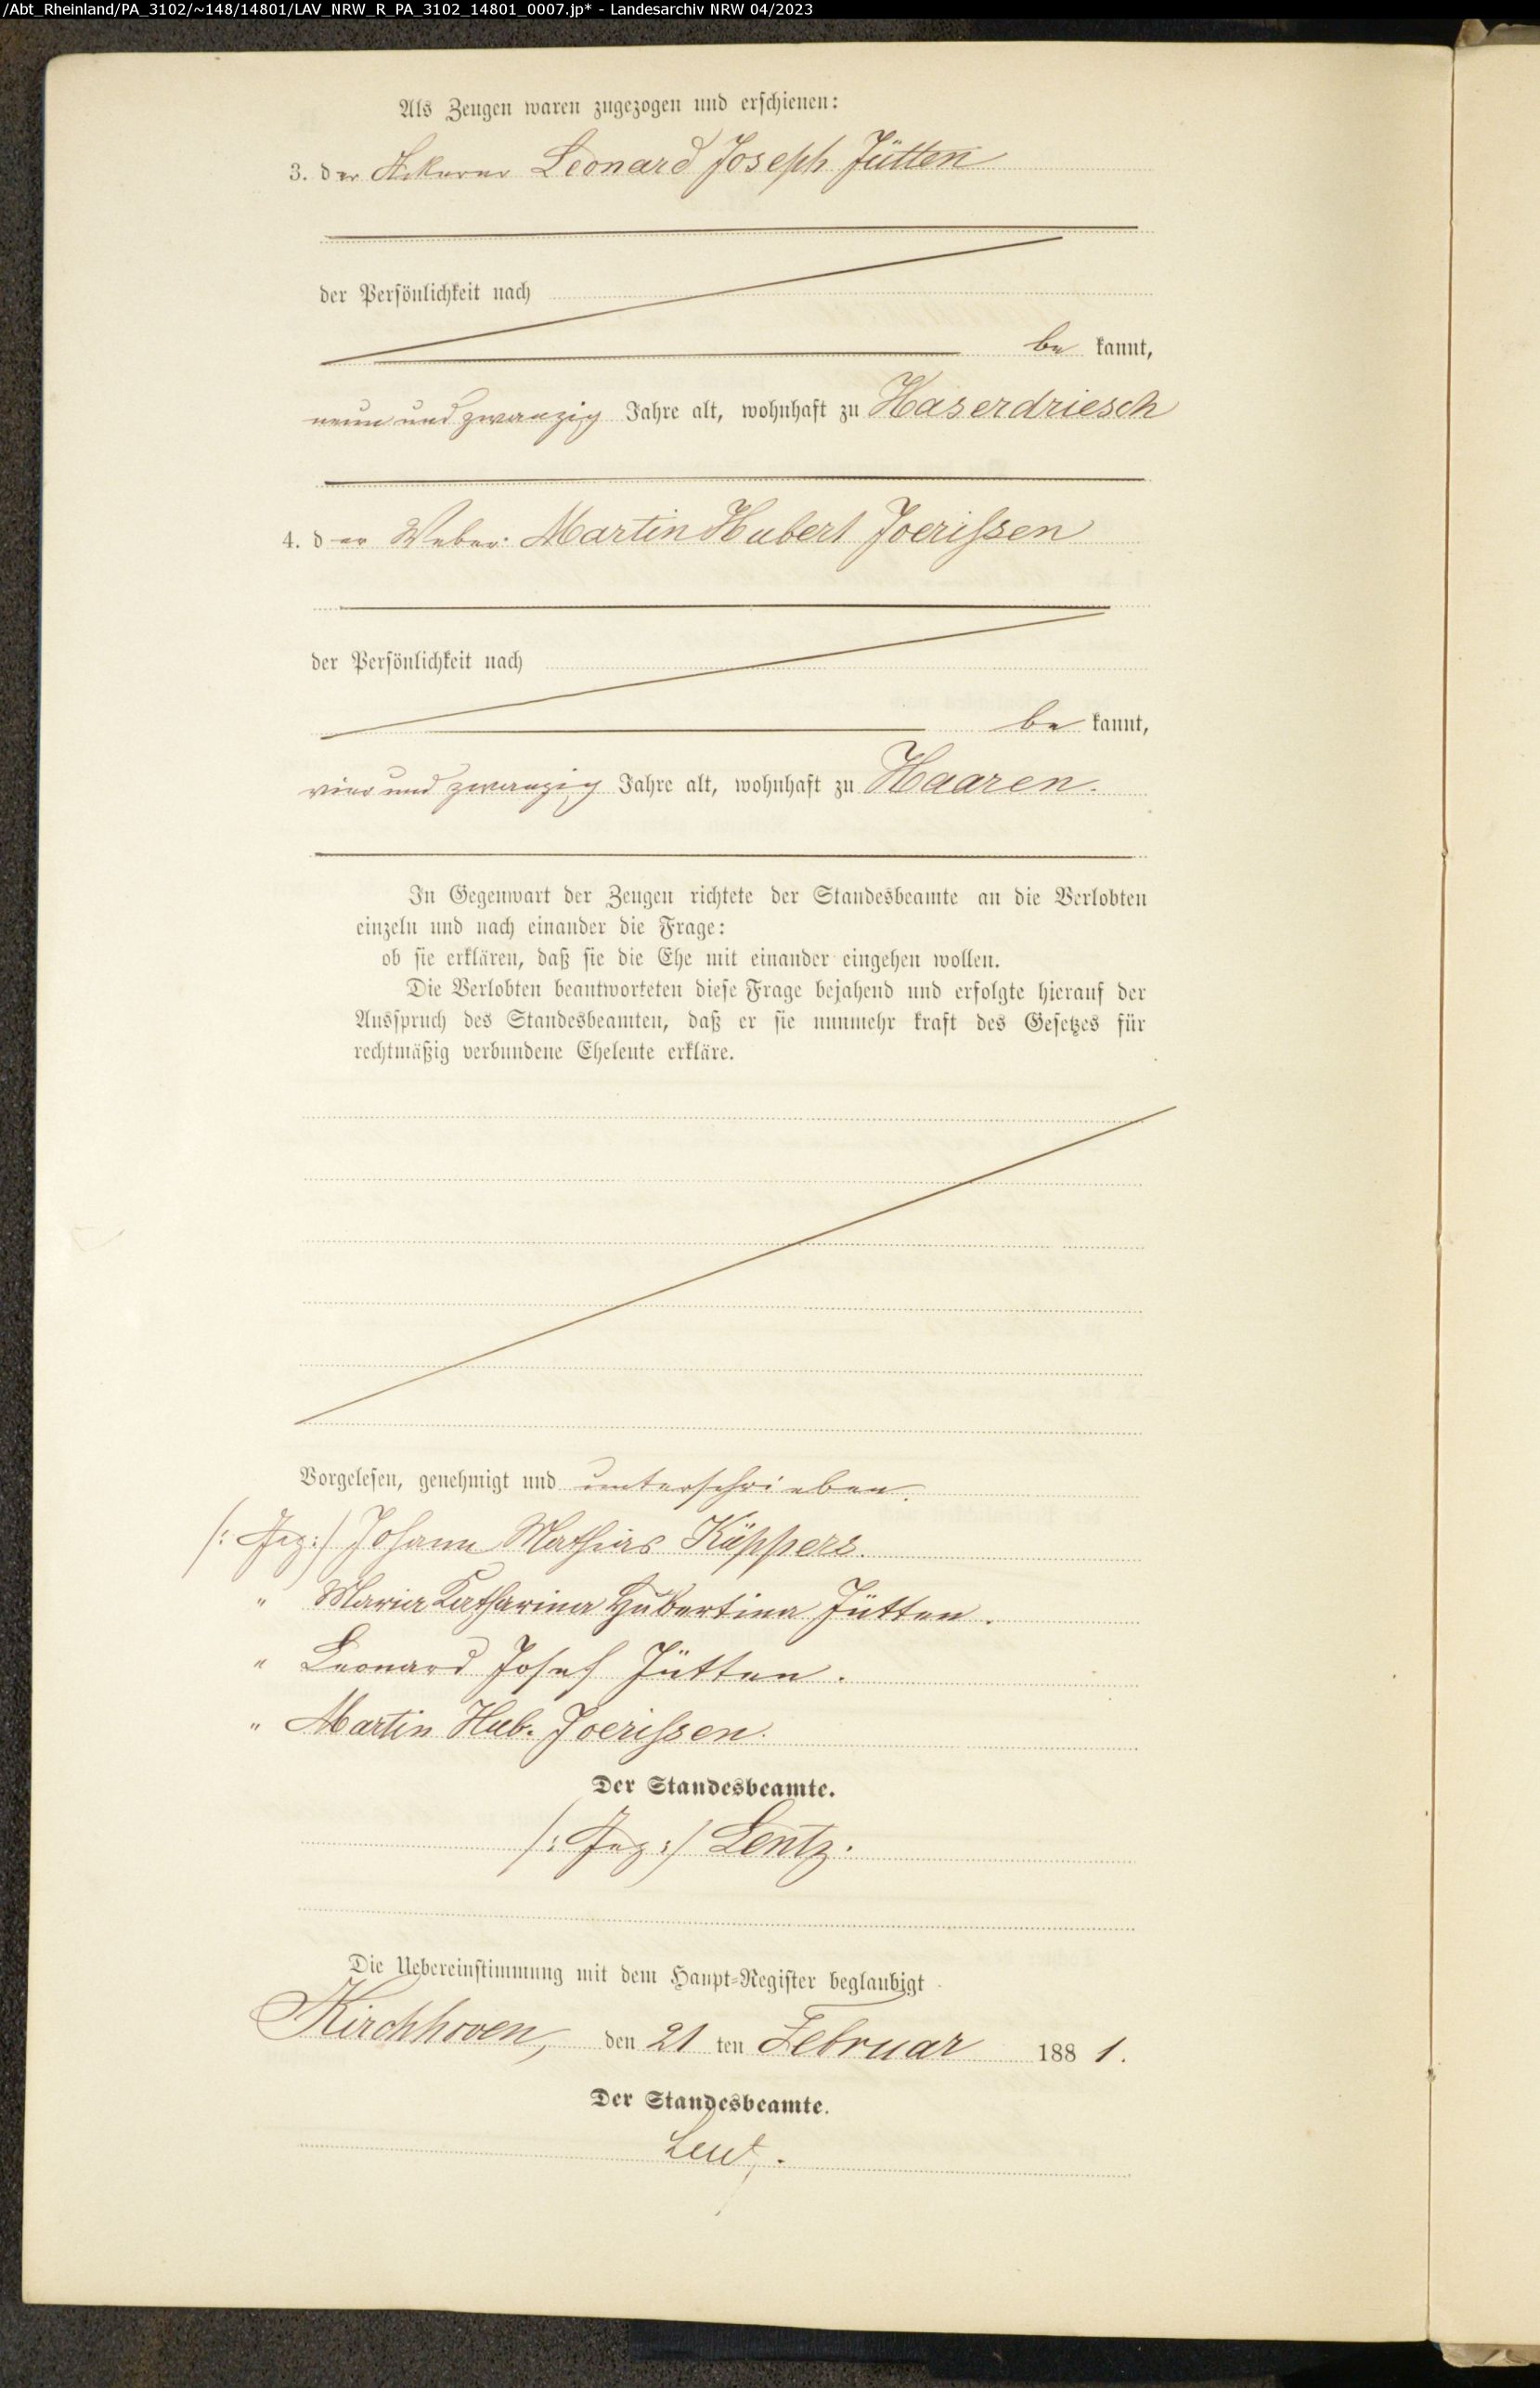 /Abt_Rheinland/PA_3102/~148/14801/LAV_NRW_R_PA_3102_14801_0007.jp* - Landesarchiv NRW 04/2023
Als Zeugen waren zugezogen und erschienen:
3. der Ackerer Leonard Joseph Jütten
der Persönlichkeit nach
be kannt,
neun und zwanzig Jahre alt, wohnhaft zu Haserdriesch
4. der Weber Martin Hubert Joerissen
der Persönlichkeit nach
be kannt,
vier und zwanzig Jahre alt, wohnhaft zu Haaren.
In Gegenwart der Zeugen richtete der Standesbeamte an die Verlobten
einzeln und nach einander die Frage:
ob sie erklären, daß sie die Ehe mit einander eingehen wollen.
Die Verlobten beantworteten diese Frage bejahend und erfolgte hierauf der
Ausspruch des Standesbeamten, daß er sie nunmehr kraft des Gesetzes für
rechtmäßig verbundene Eheleute erkläre.
Vorgelesen, genehmigt und unterschrieben.
/: Gez :/ Johann Mathias Küppers.
" Maria Katharina Hubertina Jütten.
" Leonard Josef Jütten.
" Martin Hub. Joerissen.
Der Standesbeamte.
/: Gez :/ Lentz.
Die Uebereinstimmung mit dem Haupt-Register beglaubigt
Kirchhoven, den 21 ten Februar 188 1.
Der Standesbeamte.
Lentz.